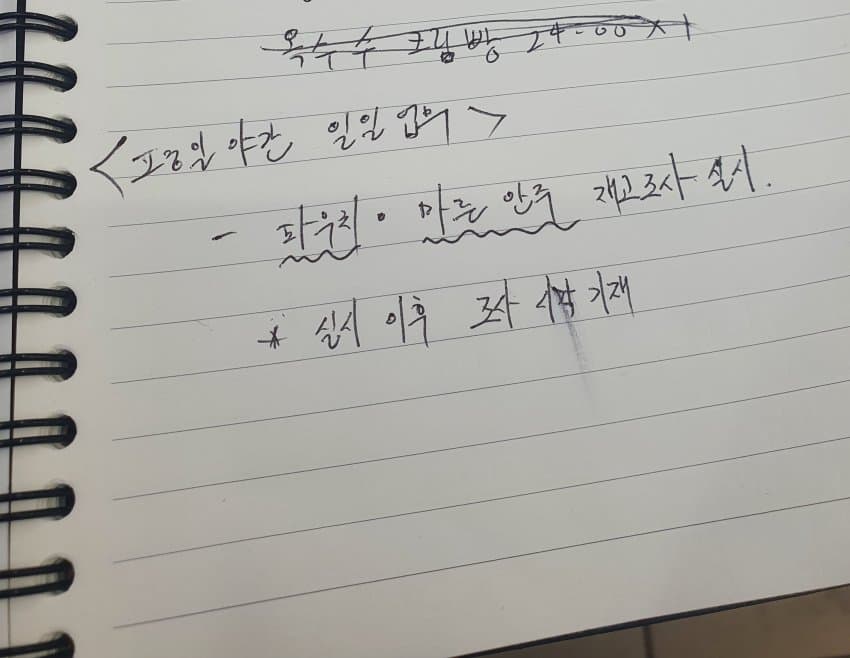 옥수수 크림빵 24-00 x 1
<평일 야간 일일 업무>
- 파우치 · 마른 안주 재고조사 실시.
* 실시 이후 조사 시작 기재